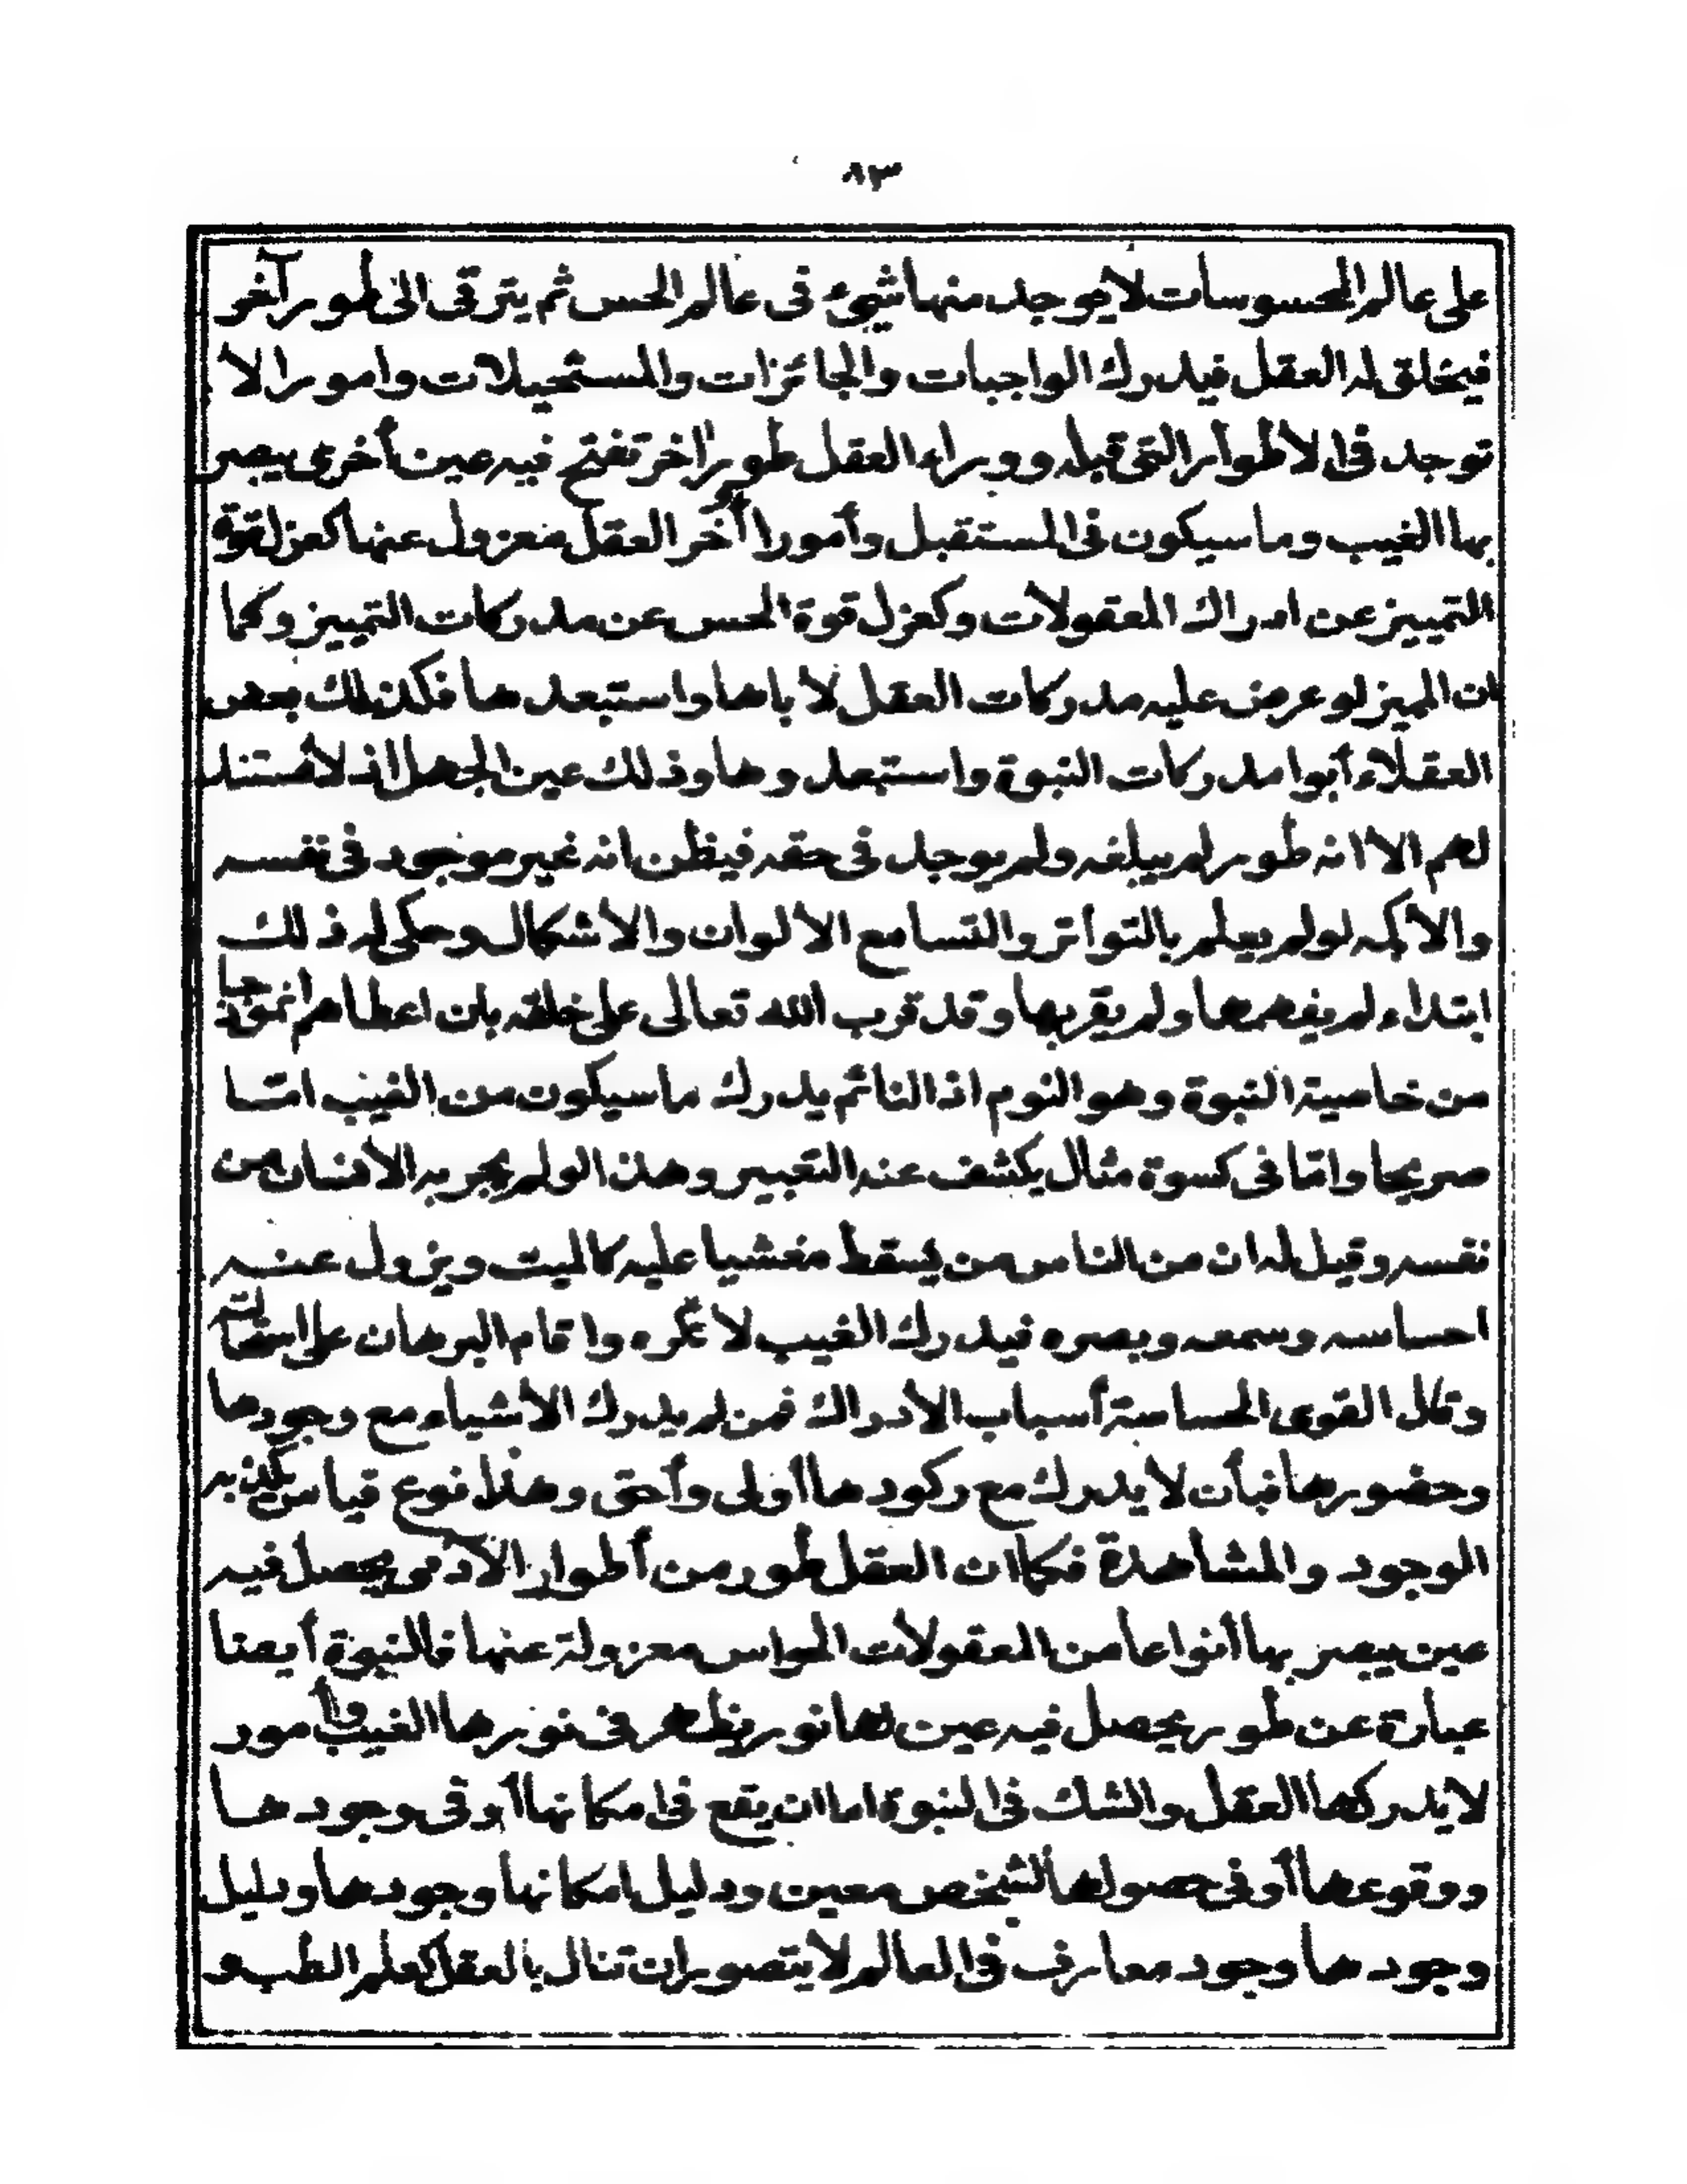 ٨٣
على عالم المحسوسات لا يوجد منها شيء في عالم الحس ثم يترقى الى طور آخر
فيخلق له العقل فيدرك الواجبات والجائزات والمستحيلات وامورا لا
توجد في الاطوار التي قبله ووراء العقل طور اخر تفتح فيه عين أخرى يبصر
بها الغيب وما سيكون في المستقبل وأمورا أخر العقل معزول عنها كعزل قوة
التمييز عن ادراك المعقولات وكعزل قوة الحس عن مدركات التمييز وكما
ان المميز لو عرض عليه مدركات العقل لاباها واستبعدها فكذلك بعض
العقلاء أبوا مدركات النبوة واستبعدوها وذلك عين الجهل اذ لا مستند
لهم الا انه طور لم يبلغه ولم يوجد في حقه فيظن انه غير موجود في نفسه
والأكمه لو لم يعلم بالتواتر والتسامع الالوان والاشكال وحكى له ذلك
ابتداء لم يفهمها ولم يقر بها وقد قرب الله تعالى على خلقه بان اعطاهم انموذجا
من خاصية النبوة وهو النوم اذ النائم يدرك ما سيكون من الغيب امّا
صريحا وامّا في كسوة مثال يكشف عنه التعبير وهذا لو لم يجربه الأنسان من
نفسه وقيل له ان من الناس من يسقط مغشيا عليه كالميت ويزول عنه
احساسه وسمعه وبصره فيدرك الغيب لأنكره واقام البرهان على استحالته
وقال القوى الحساسة أسباب الأدراك فمن لم يدرك الأشياء مع وجودها
وحضورها فبأن لا يدرك مع ركودها أولى وأحق وهذا نوع قياس يكذبه
الوجود والمشاهدة فكما ان العقل طور من أطوار الآدمي يحصل فيه
عين يبصر بها أنواعا من المعقولات الحواس معزولة عنها فالنبوة أيضا
عبارة عن طور يحصل فيه عين لها نور يظهر في نورها الغيب وأمور
لا يدركها العقل والشك في النبوة اما ان يقع في امكانها أو في وجودها
ووقوعها أو في حصولها لشخص معين ودليل امكانها وجودها ودليل
وجودها وجود معارف في العالم لا يتصور ان تنال بالعقل كعلم الطب و